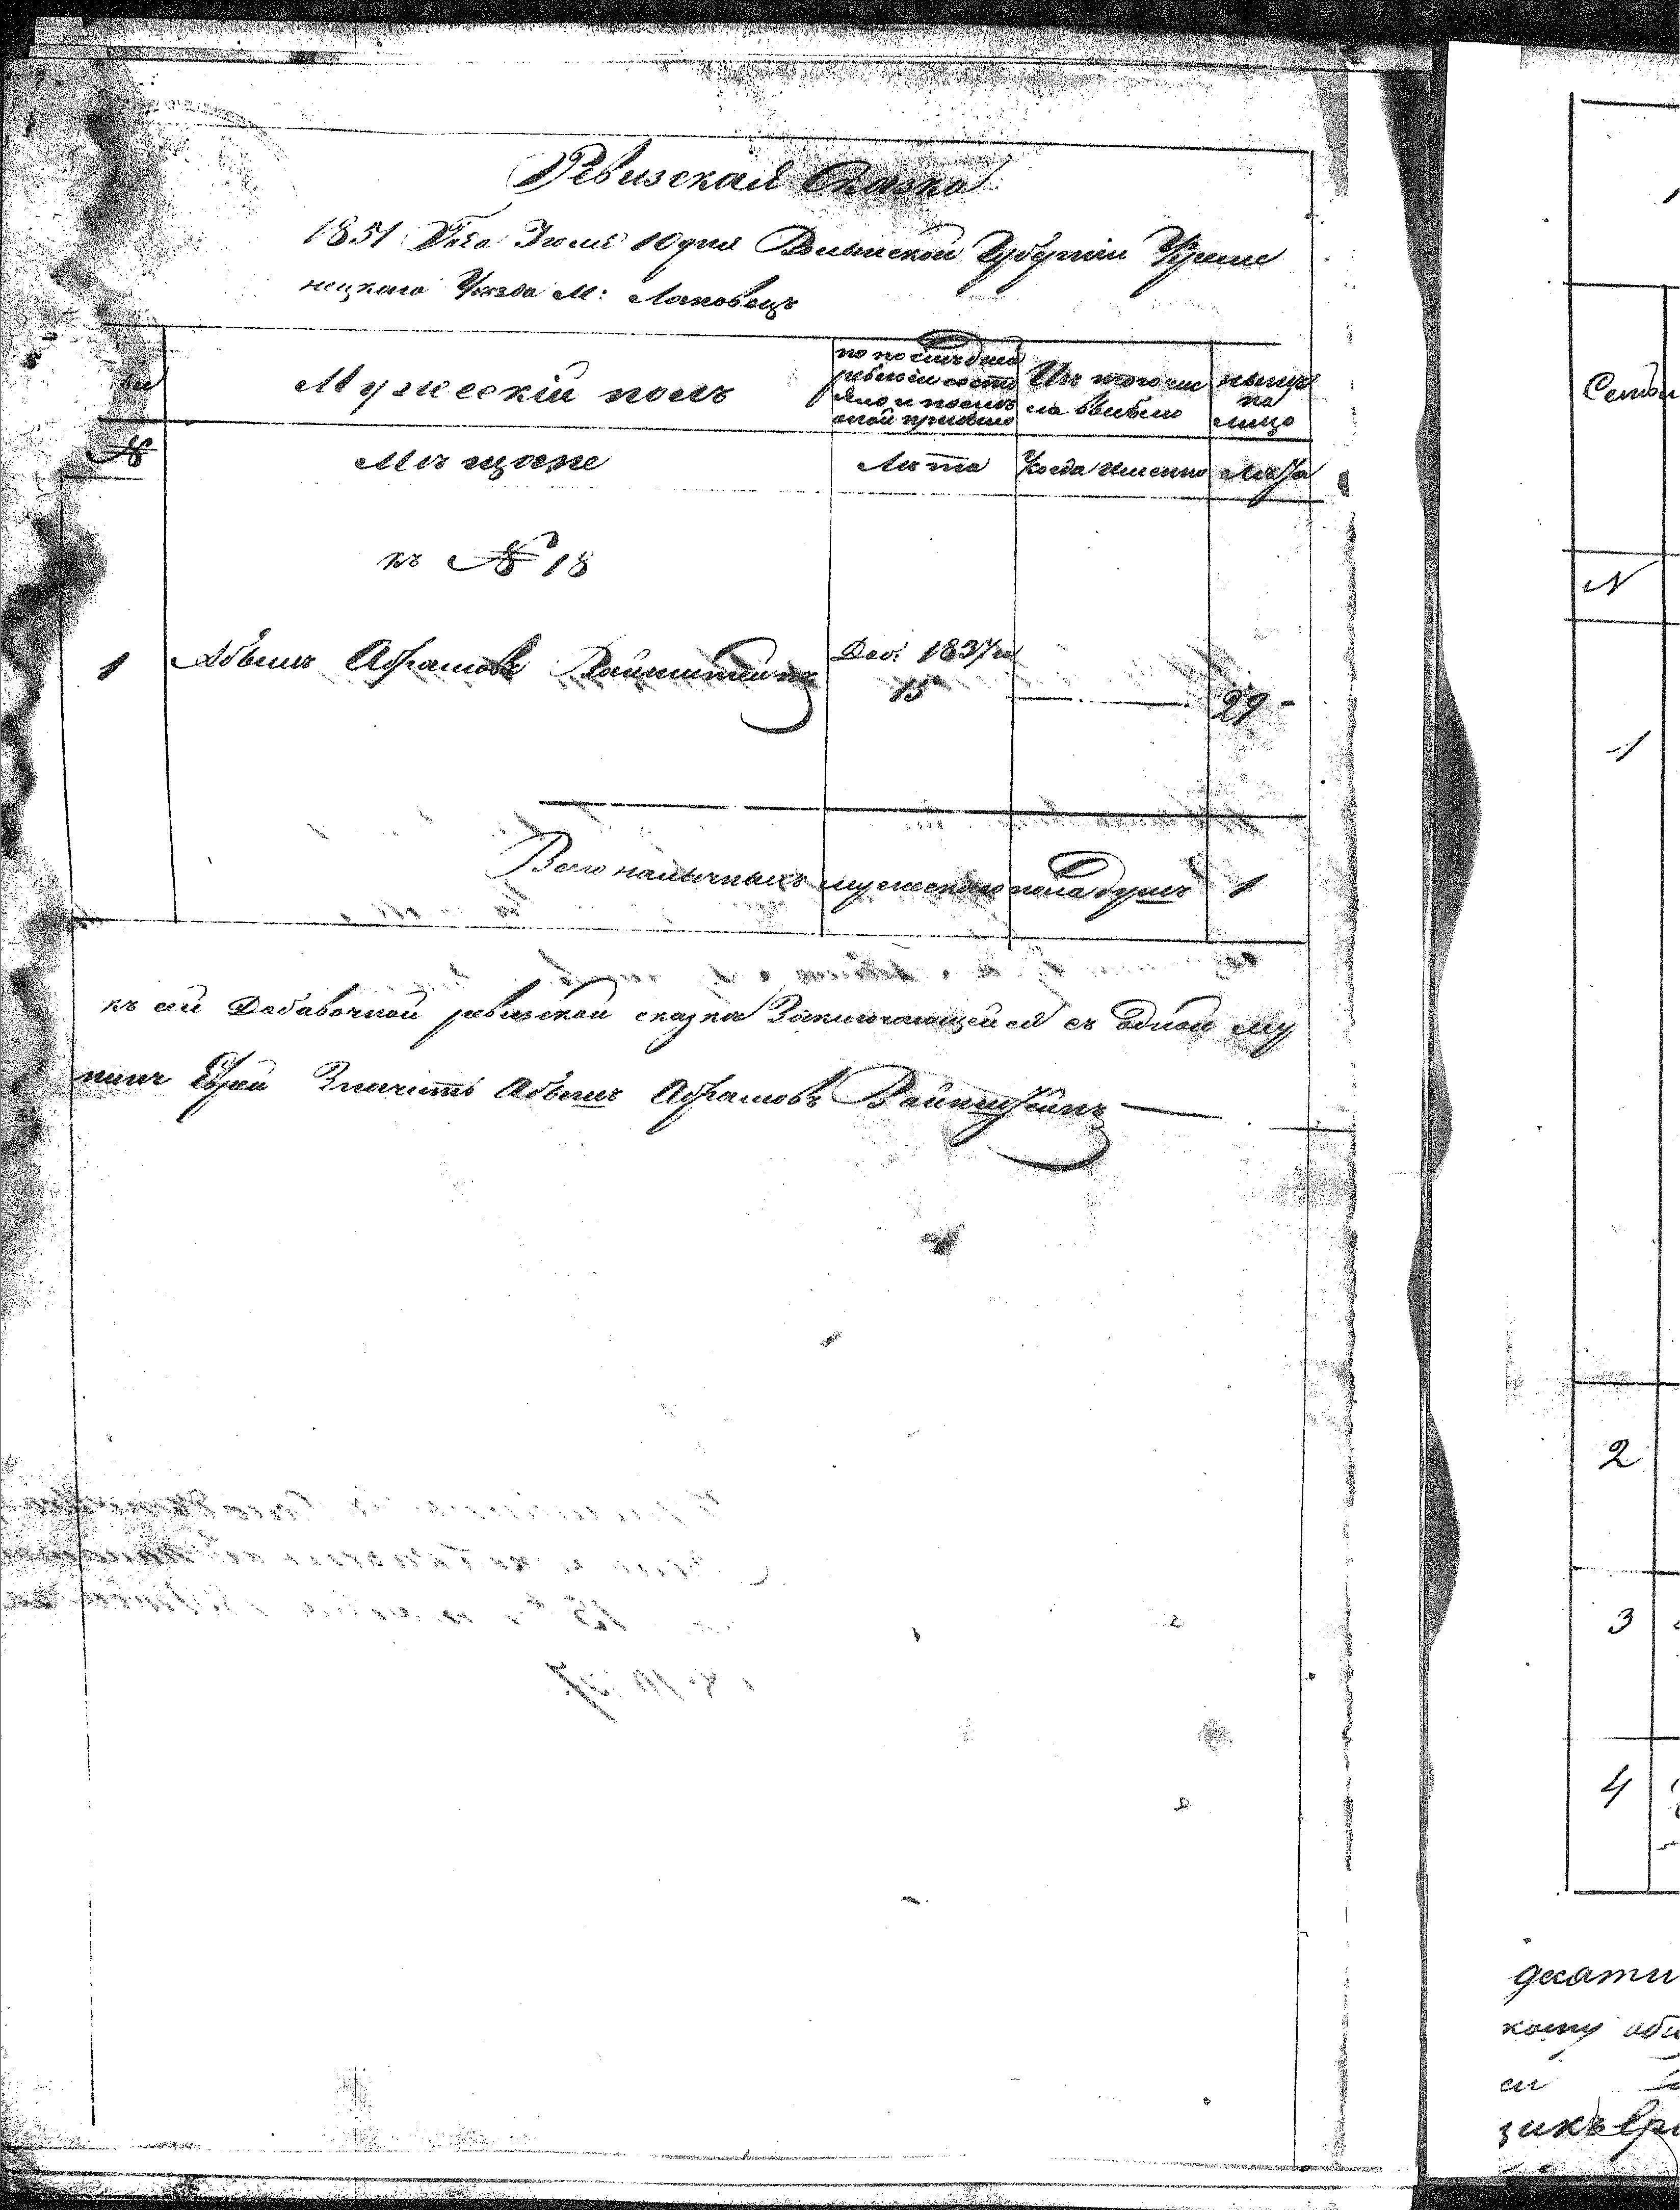 Ревизская Сказка
1851 Года Июля 10 дня Волынской Губерніи Креме
нецкаго Уезда М: Лановецъ
Мужескій полъ
по последней
ревизіи состо
яло и после
оной прибыло
Изъ того чис
ла выбыло
ныне
на
лицо
№
Мещане
Лета
Когда именно
Лета
къ № 18
1
Абрамовъ Вайнштейнъ
Доб. 1837 го
15
29
Всего наличныхъ мужескаго пола душъ 1
къ сей Добавочной ревизской сказки Заключающейся съ одной му
Значитъ Абрамовъ Вайнштейнъ
Семьи
N
1
2
3
4
дкати
кому